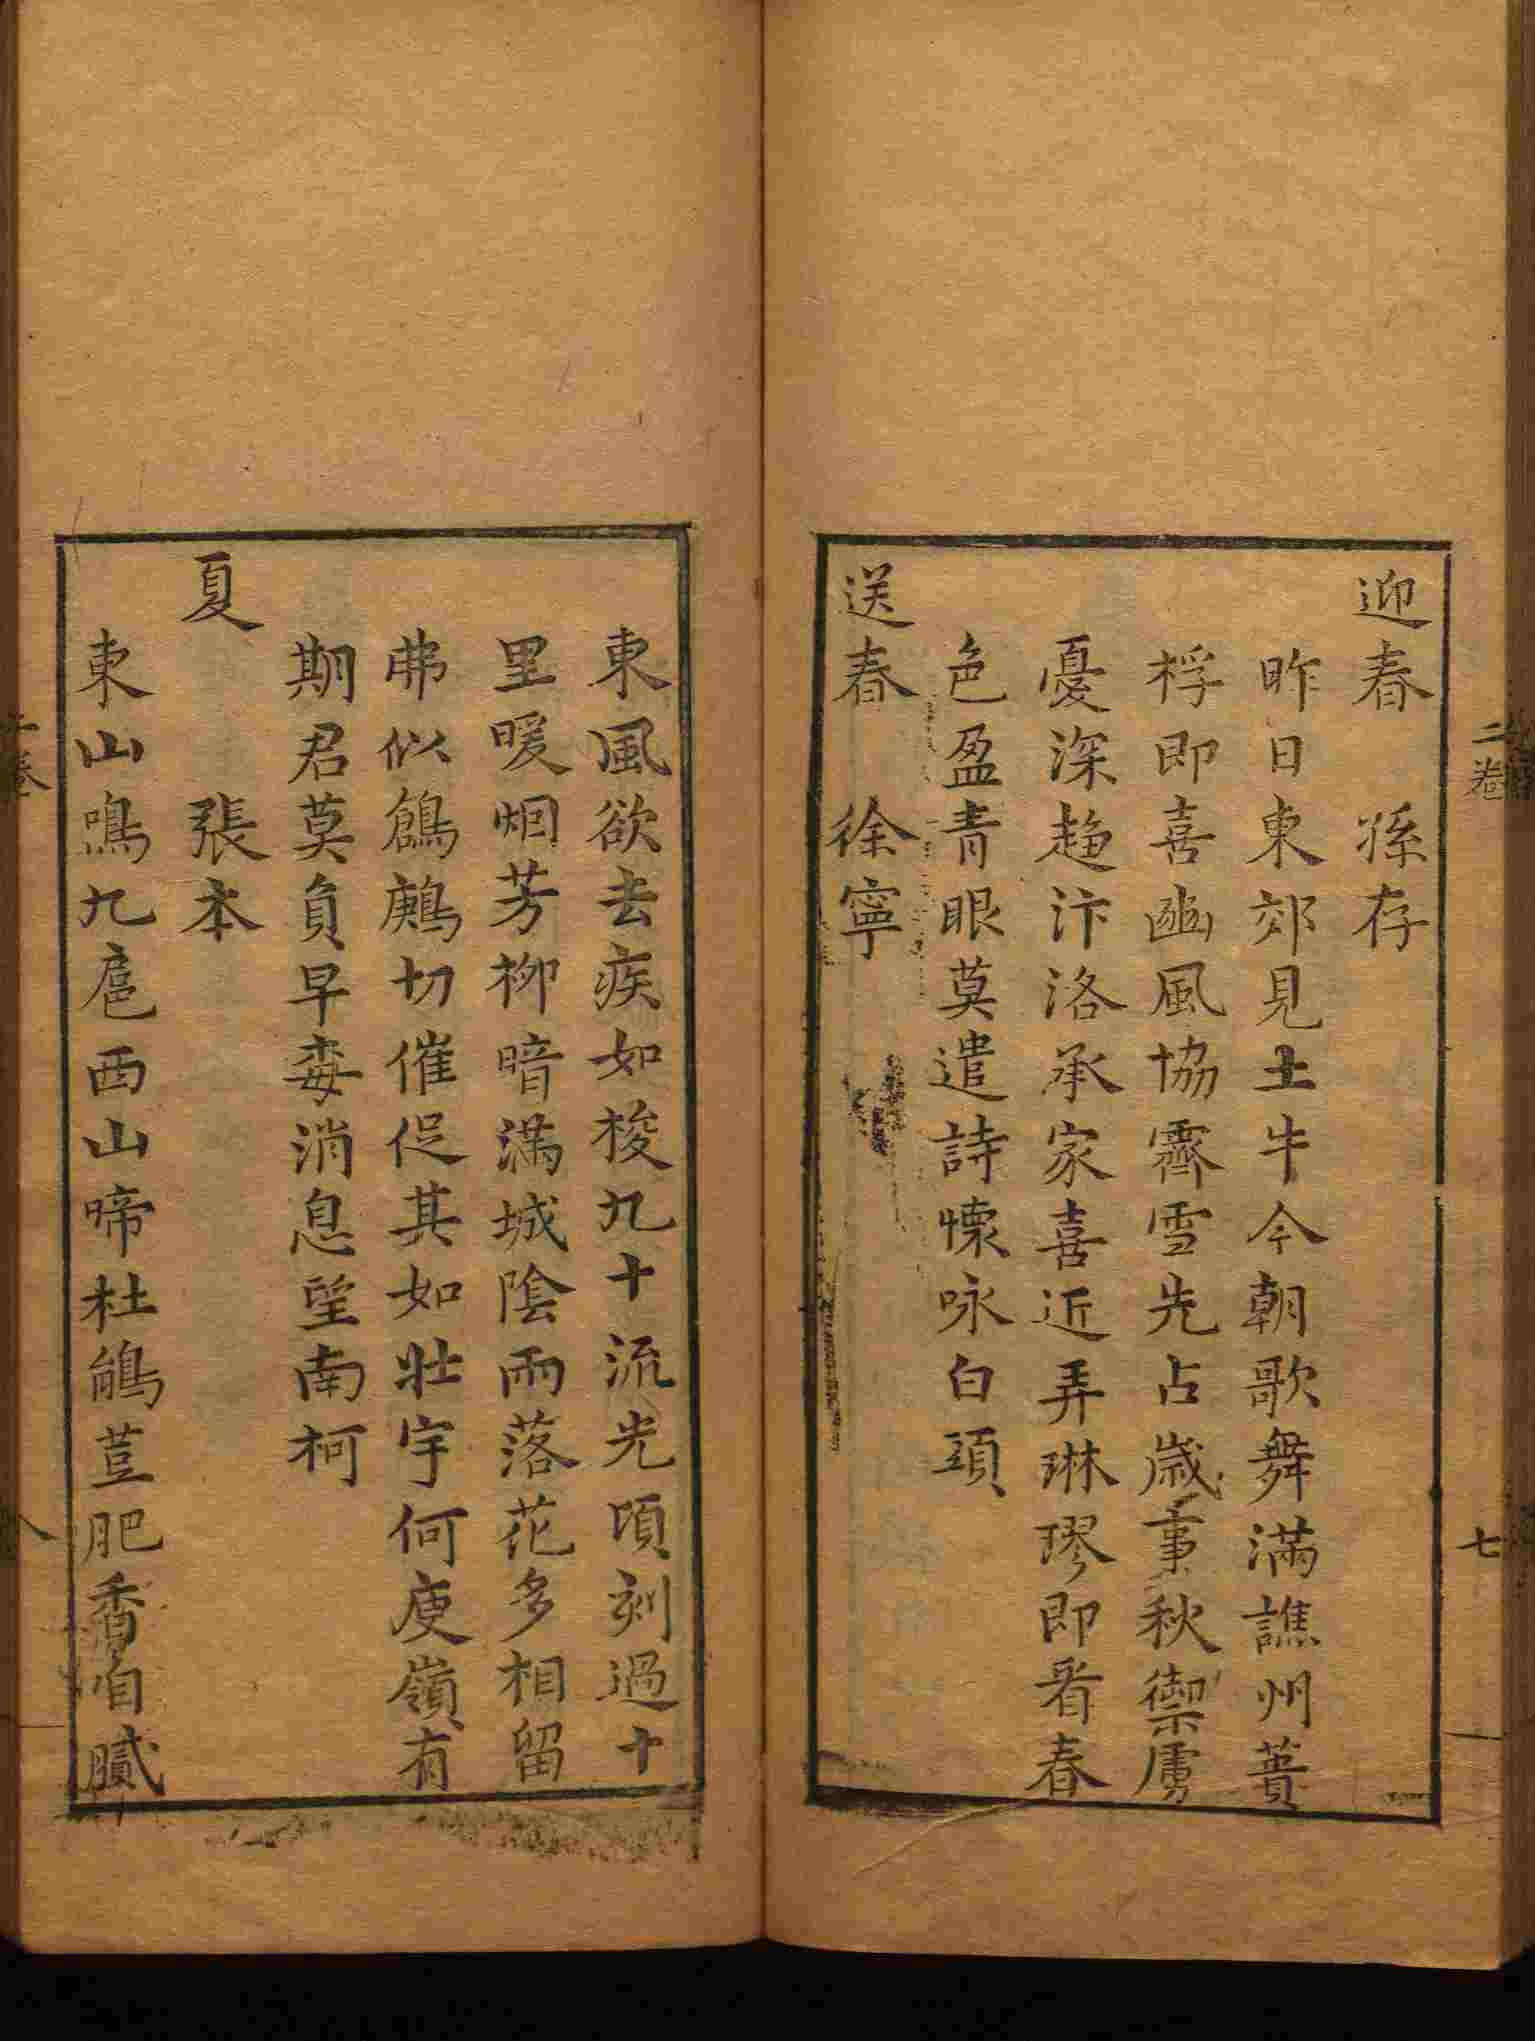 迎春　孫存
昨日東郊見土牛今朝歌舞滿譙州蕢
桴即喜豳風協霽雪先占歲事秋禦虜
憂深趍汴洛承家喜近弄琳璆即看春
色盈青眼莫遣詩懷咏白頭
送春　徐寧
二卷
七
東風欲去疾如梭九十流光頃刻過十
里暖烟芳柳暗滿城陰雨落花多相留
弗似鶬鶊切催促其如壯宇何庾嶺有
期君莫負早梅消息望南柯
夏　張本
東山鳴九扈西山啼杜鵑荳肥香自膩
二卷
八